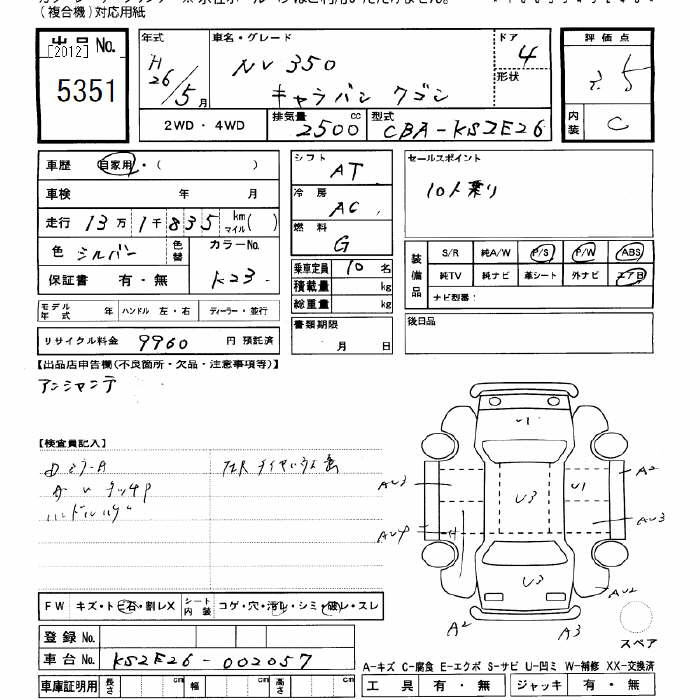 (複合機)対応用紙
出品 No.
[2012]
5351
年式
H
26/5月
車名・グレード
NV350
キャラバン ワゴン
ドア
4
形状
評価点
3.5
内装
C
2WD・4WD
排気量
2500 cc
型式
CBA-KS2E26
車歴 自家用・( )
車検 年 月
走行 13万1千835 km マイル( )
色 シルバー 色替 カラーNo.
K23
保証書 有・無
モデル年式 年 ハンドル 左・右 ディーラー・並行
リサイクル料金 9960 円 預託済
シフト
AT
冷房
AC
燃料
G
乗車定員 10 名
積載量 kg
総重量 kg
書類期限
月 日
セールスポイント
10人乗り
装備品
S/R 純A/W P/S P/W ABS
純TV 純ナビ 革シート 外ナビ エアB
ナビ型番:
後日品
【出品店申告欄(不良箇所・欠品・注意事項等)】
アンシャンテ
【検査員記入】
ハンドルハゲ
U1
AU3 U3 U1 A2
AU4 AU3
U3 AU2
A2 A3
スペア
FW キズ・トビ石・割レX シート内装 コゲ・穴・汚レ・シミ・破レ・スレ
登録 No.
車台 No. KS2E26-002057
車庫証明用 長さ cm 幅 cm 高さ cm
A-キズ C-腐食 E-エクボ S-サビ U-凹ミ W-補修 XX-交換済
工具 有・無 ジャッキ 有・無